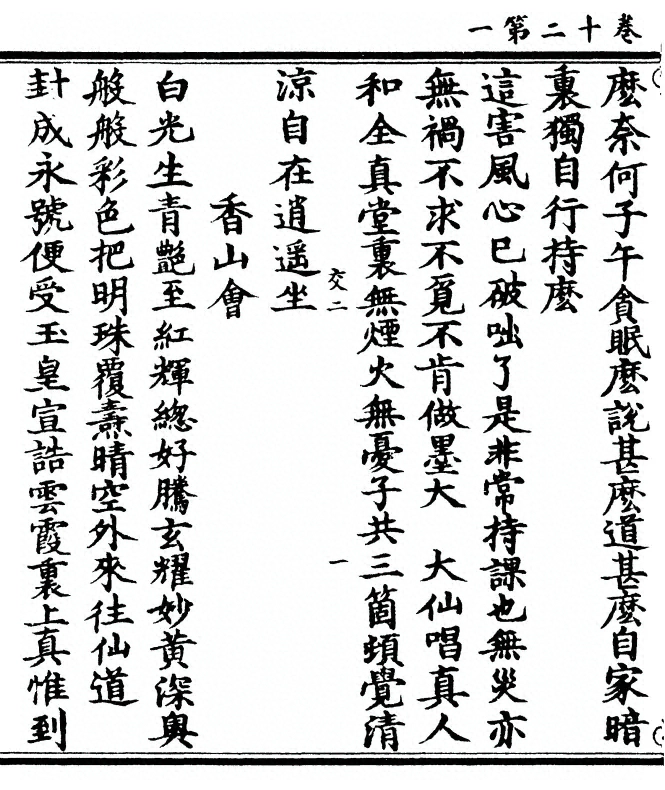 卷十二第一
麼奈何子午貪眠麼說甚麼道甚麼自家暗
裏獨自行持麼
這害風心已破咄了是非常持課也無災亦
無禍不求不覓不肯做墨大　大仙唱真人
和全真堂裏無煙火無憂子共三箇頓覺清
交二
一
涼自在逍遥坐
香山會
白光生青艷至紅輝緫好騰玄耀妙黃深奧
般般彩色把明珠覆燾晴空外來往仙道
封成永號便受玉皇宣誥雲霞裏上真惟到